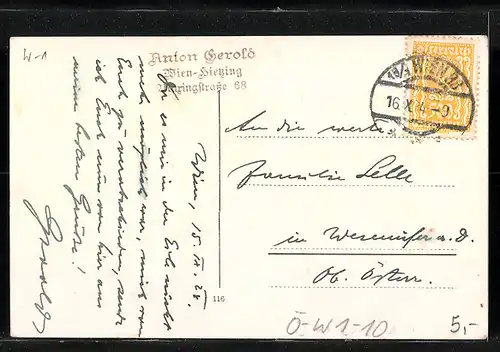 W-1
Anton Gerold
Wien-Hietzing
68
Wien, 15. IX. 24.
Da es mir in der Eile nicht
mehr möglich war, mich von
Euch zu verabschieden, sende
ich Euch nun von hier aus
meine besten Grüße!
Gerold
16.X.24-9
An die werte
Familie Selle
in Wesenufer a. D.
Ob. Österr.
116
Ö-W1-10
5,-